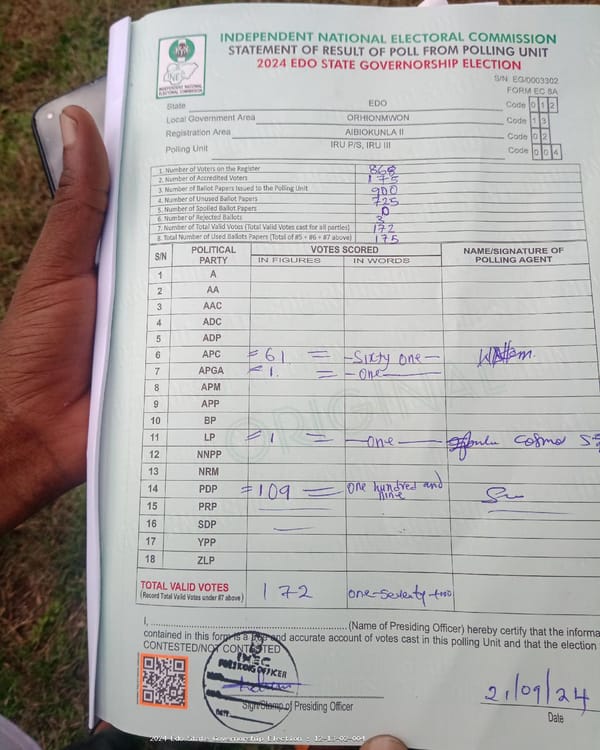 INDEPENDENT NATIONAL ELECTORAL COMMISSION
STATEMENT OF RESULT OF POLL FROM POLLING UNIT
2024 EDO STATE GOVERNORSHIP ELECTION
INDEPENDENT NATIONAL ELECTORAL COMMISSION
S/N: EG/0003302
FORM EC 8A
State EDO Code 0 1 2
Local Government Area ORHIONMWON Code 1 3
Registration Area AIBIOKUNLA II Code 0 2
Polling Unit IRU P/S, IRU III Code 0 0 4
1. Number of Voters on the Register 868
2. Number of Accredited Voters 175
3. Number of Ballot Papers Issued to the Polling Unit 900
4. Number of Unused Ballot Papers 725
5. Number of Spoiled Ballot Papers 0
6. Number of Rejected Ballots 3
7. Number of Total Valid Votes (Total Valid Votes cast for all parties) 172
8. Total Number of Used Ballots Papers (Total of #5 + #6 + #7 above) 175
S/N POLITICAL PARTY VOTES SCORED NAME/SIGNATURE OF POLLING AGENT
IN FIGURES IN WORDS
1 A
2 AA
3 AAC
4 ADC
5 ADP
6 APC = 61 = - Sixty one -
7 APGA = 1. = - one -
8 APM
9 APP
10 BP
11 LP = 1 = - one - Cosmo
12 NNPP
13 NRM
14 PDP = 109 = one hundred and nine
15 PRP
16 SDP
17 YPP
18 ZLP
ORIGINAL
TOTAL VALID VOTES 172 one-seventy-two
(Record Total Valid Votes under #7 above)
I, (Name of Presiding Officer) hereby certify that the informa
contained in this form is a true and accurate account of votes cast in this polling Unit and that the election
CONTESTED/NOT CONTESTED
INEC
PRESIDING OFFICER
DATE
Sign/Stamp of Presiding Officer
21/09/24
Date
2024 Edo State Governorship Election : 12-13-02-004